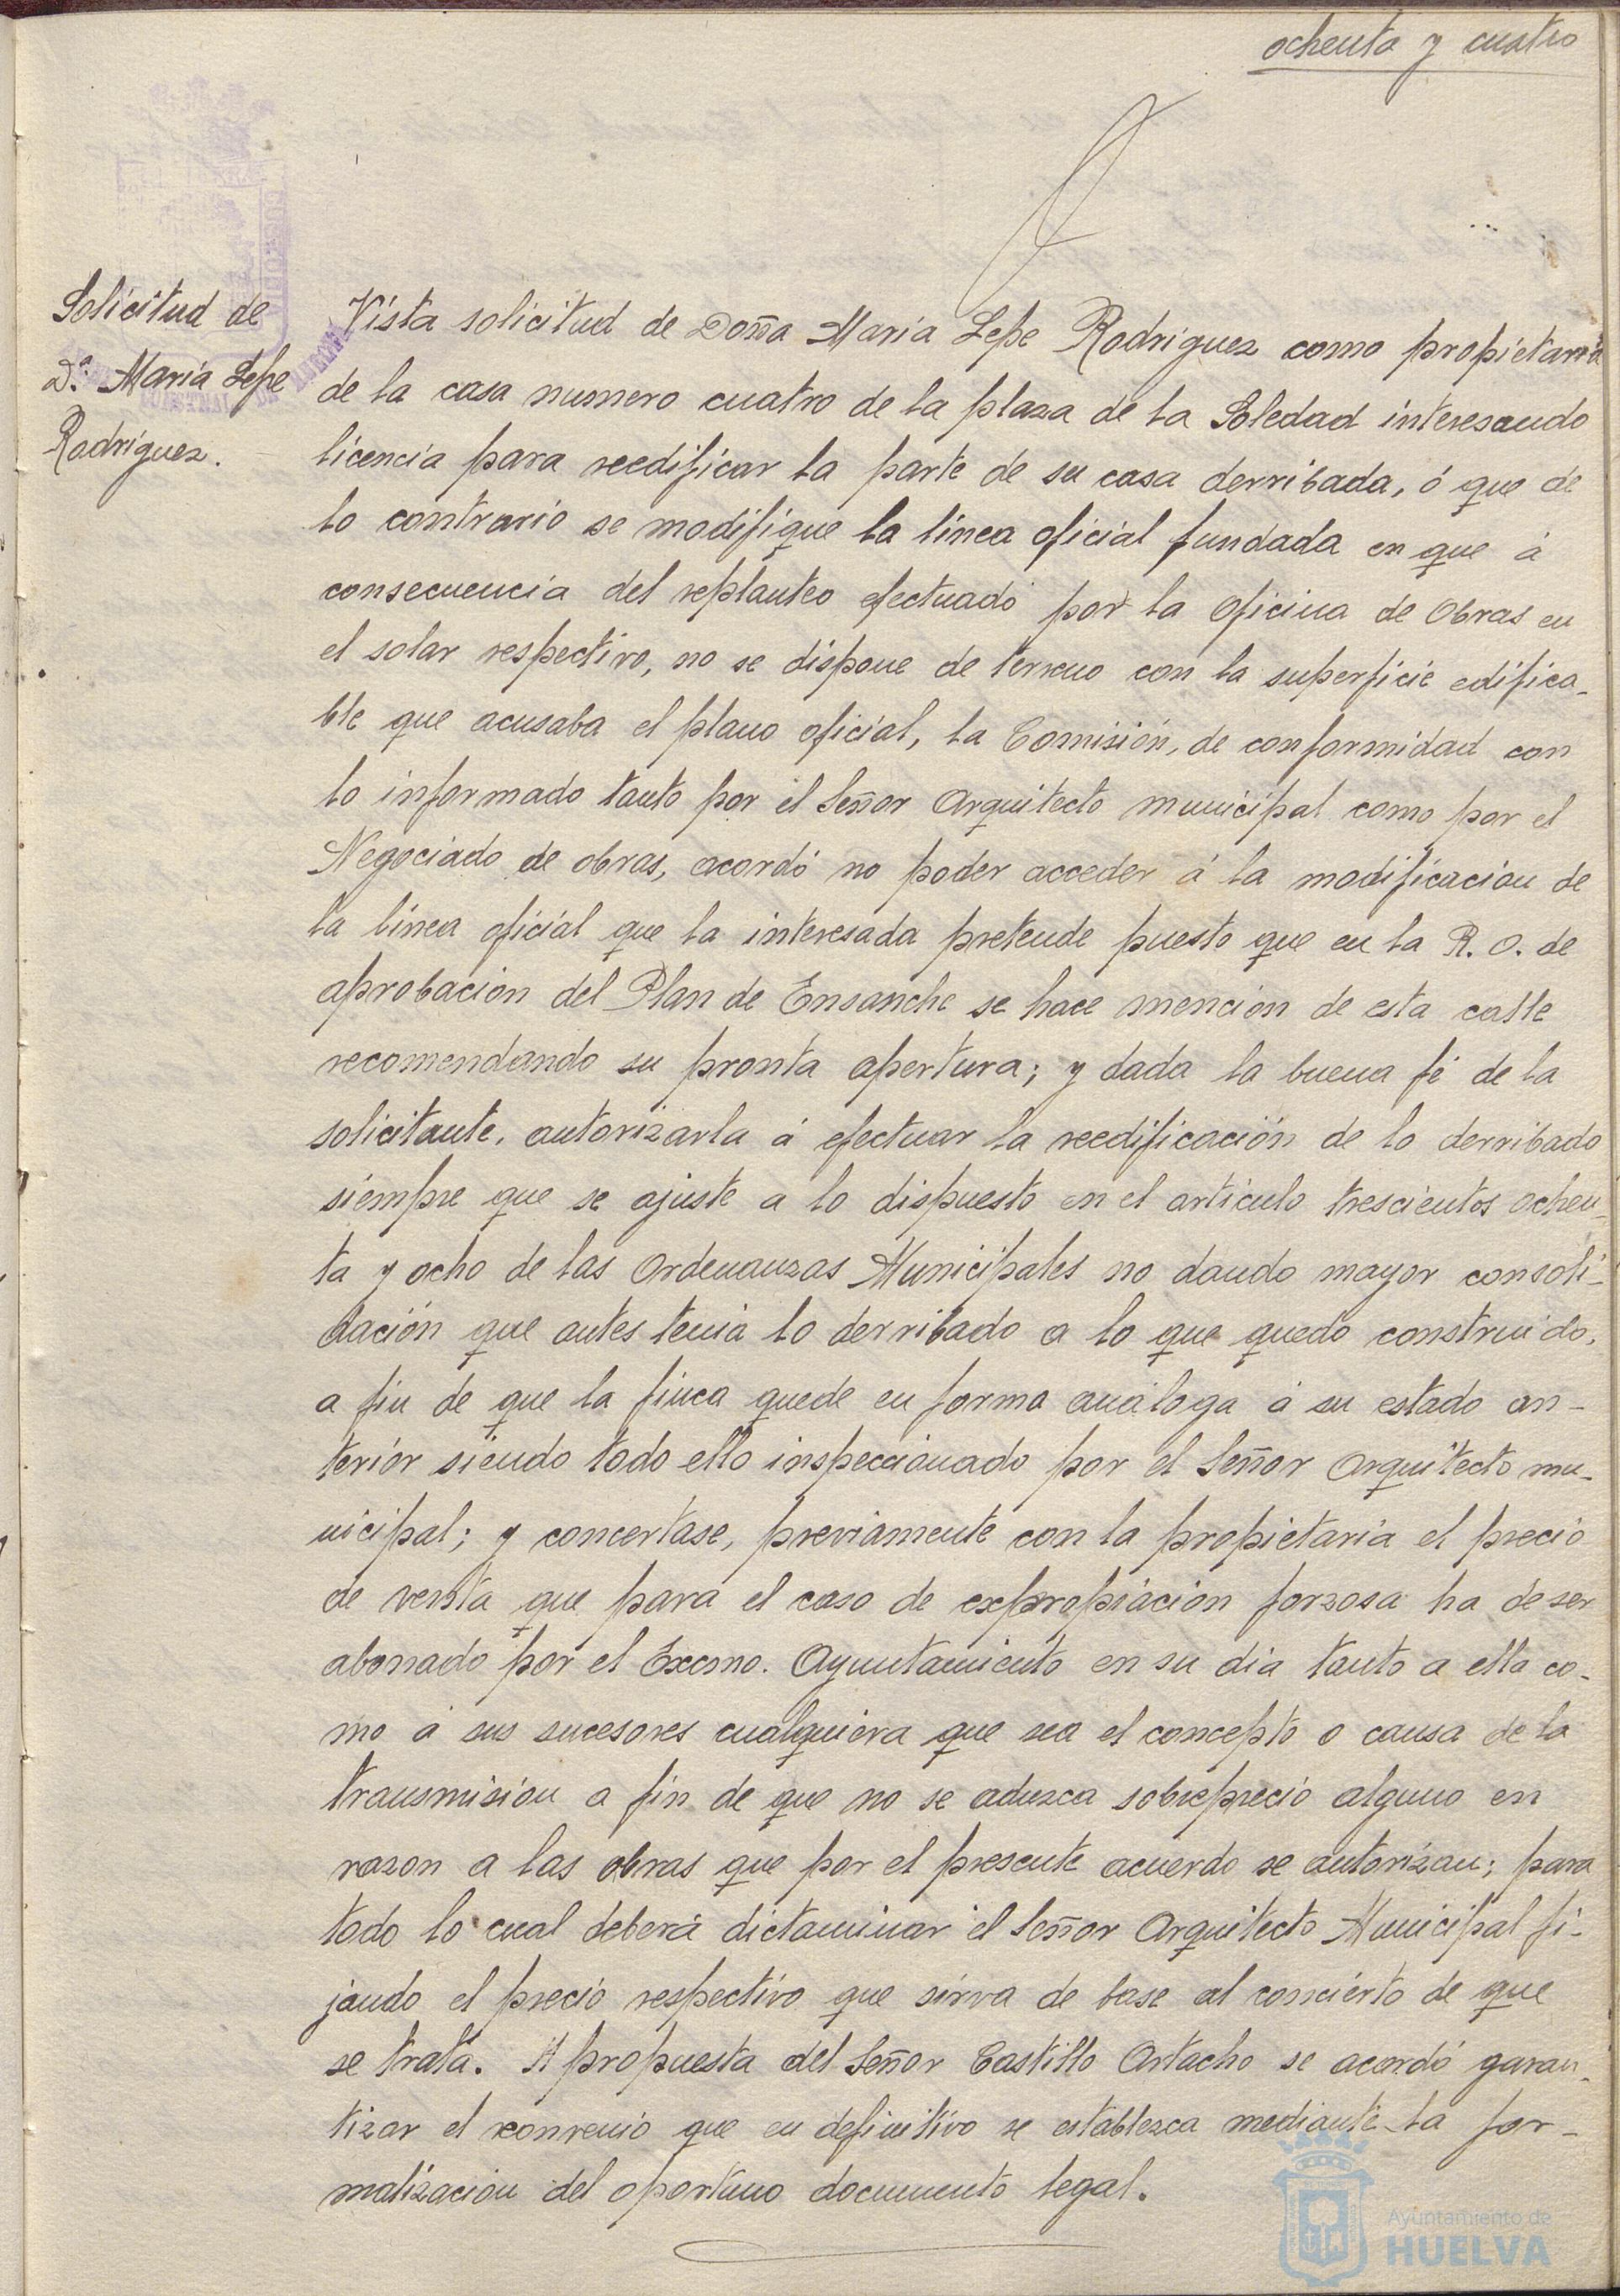 ochenta y cuatro
Solicitud de
Dª Maria Lepe
Rodriguez.
Vista solicitud de Doña Maria Lepe Rodriguez como propietaria
de la casa numero cuatro de la plaza de la Soledad interesando
licencia para reedificar la parte de su casa derribada, ó que de
lo contrario se modifique la linea oficial fundada en que á
consecuencia del replanteo efectuado por la oficina de Obras en
el solar respectivo, no se dispone de terreno con la superficie edifica-
ble que acusaba el plano oficial, la Comisión, de conformidad con
lo informado tanto por el Señor Arquitecto municipal como por el
Negociado de obras, acordó no poder acceder á la modificación de
la linea oficial que la interesada pretende puesto que en la R. O. de
aprobación del Plan de Ensanche se hace mención de esta calle
recomendando su pronta apertura; y dada la buena fé de la
solicitante, autorizarla á efectuar la reedificación de lo derribado
siempre que se ajuste a lo dispuesto en el articulo trescientos ochen-
ta y ocho de las Ordenanzas Municipales no dando mayor consoli-
dación que antes tenia lo derribado a lo que quedo construido,
a fin de que la finca quede en forma análoga á su estado an-
terior siendo todo ello inspeccionado por el Señor Arquitecto mu-
nicipal; y concertase, previamente con la propietaria el precio
de venta que para el caso de expropiación forzosa ha de ser
abonado por el Excmo. Ayuntamiento en su dia tanto a ella co-
mo á sus sucesores cualquiera que sea el concepto o causa de la
transmisión a fin de que no se aduzca sobreprecio alguno en
razon a las obras que por el presente acuerdo se autorizan; para
todo lo cual deberá dictaminar el Señor Arquitecto Municipal fi-
jando el precio respectivo que sirva de base al concierto de que
se trata. A propuesta del Señor Castillo Artacho se acordó garan-
tizar el convenio que en definitivo se establezca mediante la for-
malización del oportuno documento legal.
Ayuntamiento de
HUELVA